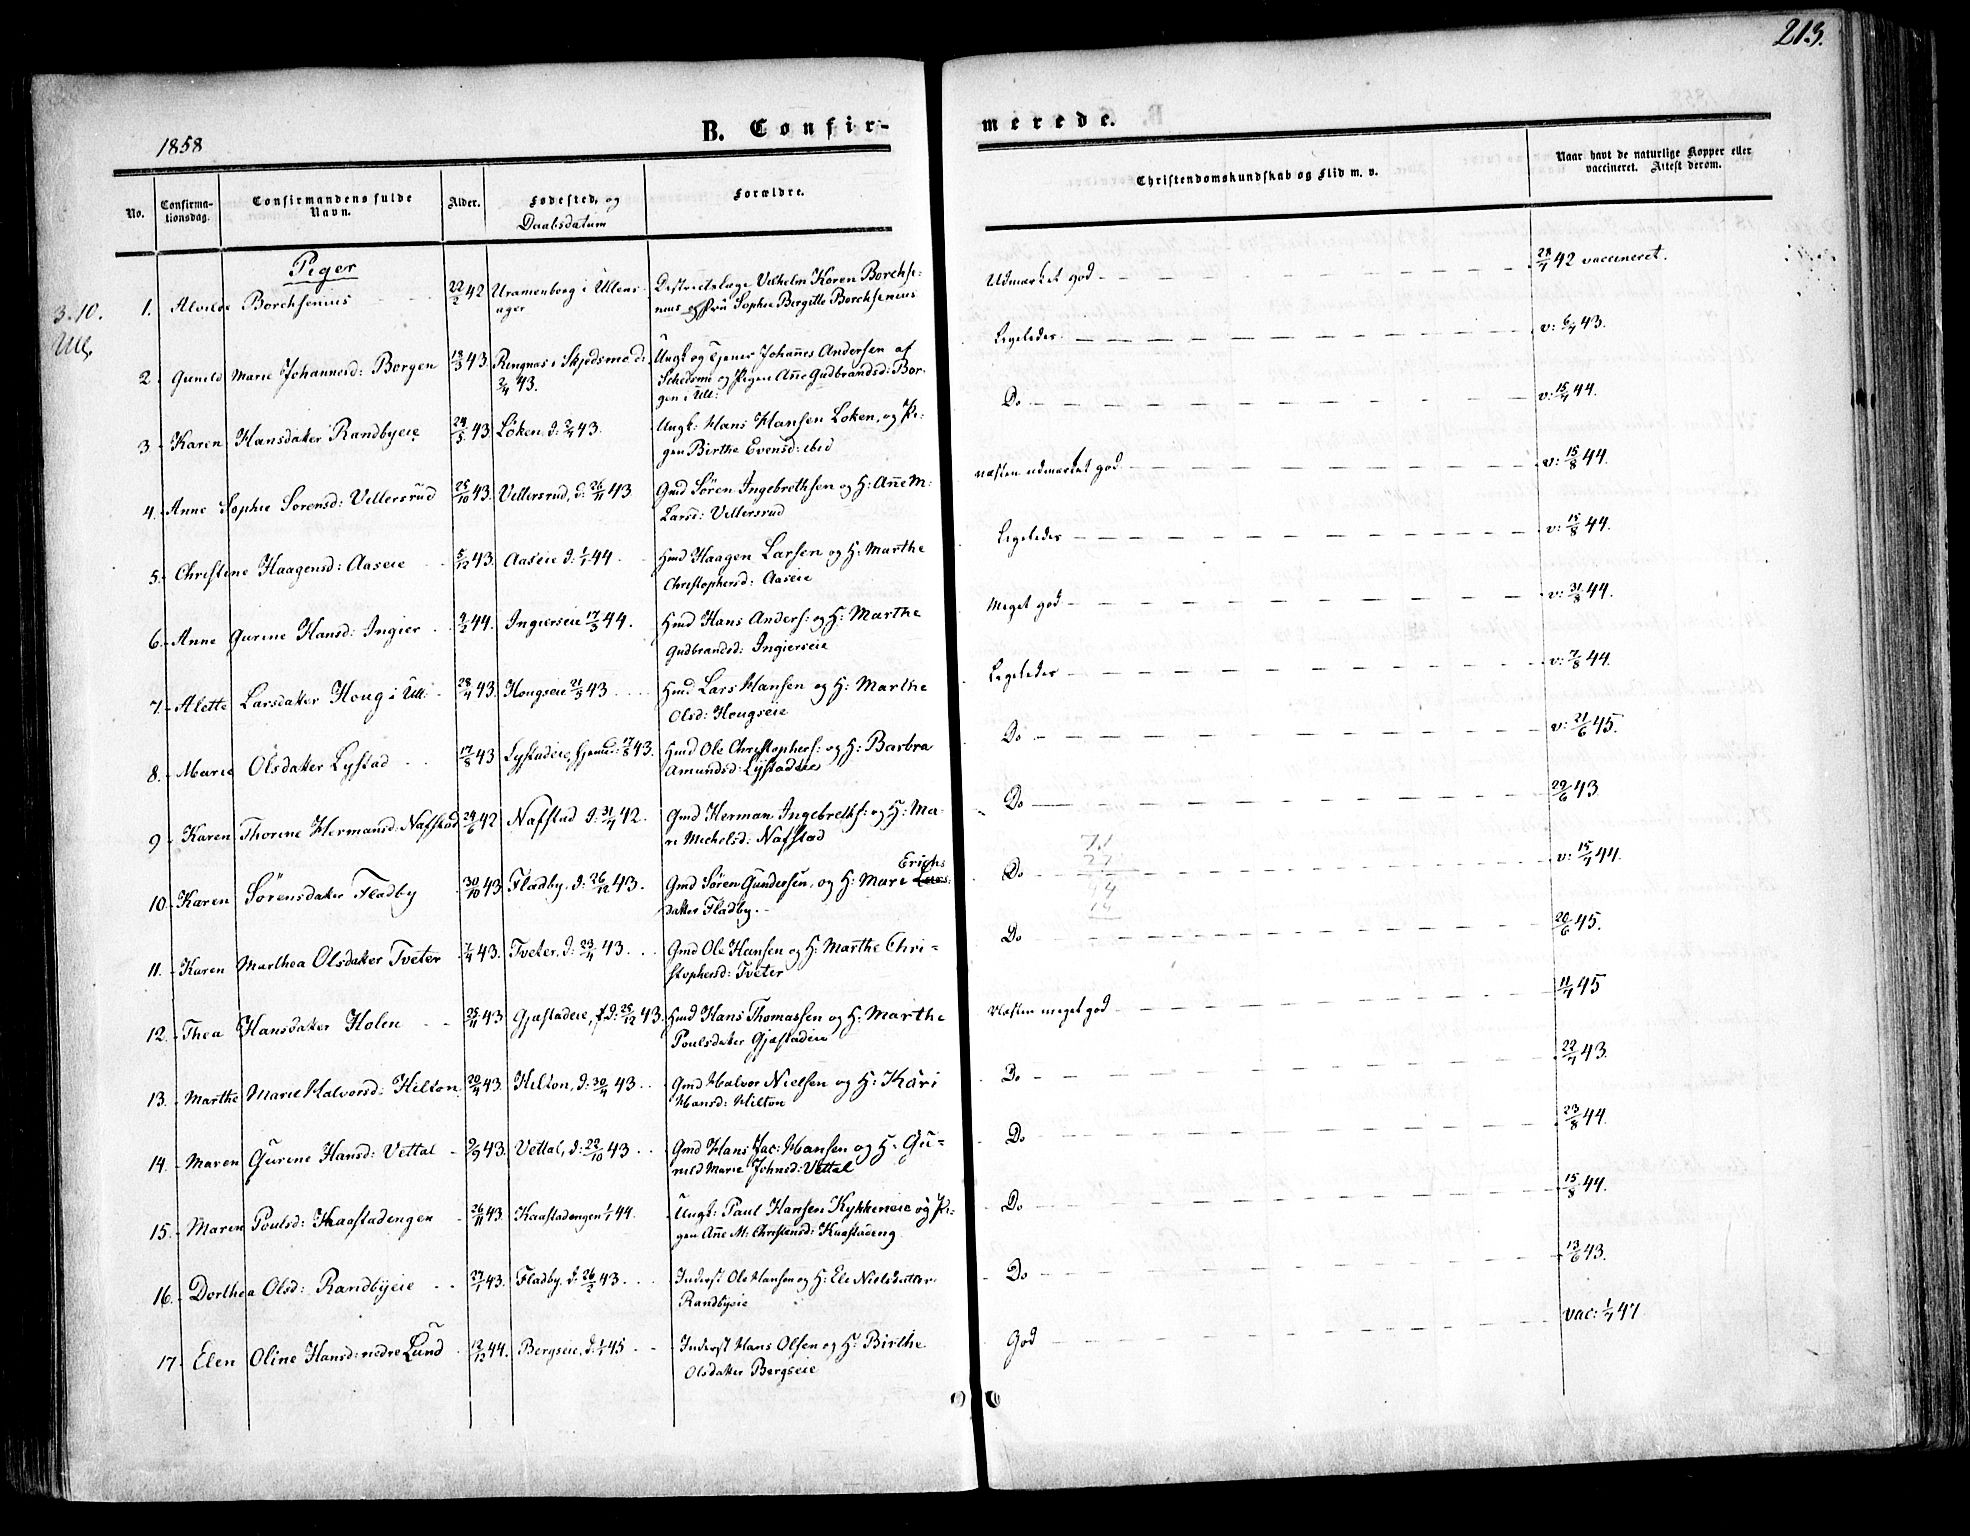 213.
1858
B. Confir-
merede.
No.
Confirma-
tionsdag.
Confirmandens fulde
Navn.
Alder.
Fødested, og
Daabsdatum
Forældre.
Christendomskundskab og Flid m. v.
Naar havt de naturlige Kopper eller
vaccineret. Attest derom.
3.10.
Ull.
Piger
1. Alvilde Borchsenius 22/2 42 Uranienborg i Ullens- Destrictslæge Vilhelm Koren Borchse-
ager nius og Fru Sophie Birgitte Borchsenius
Udmærket god 28/7 42 vaccineret.
2. Gunild Marie Johannesd: Borgen 13/3 43. Ringnæs i Skjedsmo d: Ungk og tjener Johañes Andersen af
2/4 43. Schedsmo og Pigen Añe Gudbrandsd: Bor-
gen i Ull:
Ligeledes. v: 6/7 43.
3. Karen Hansdatter Randbyeie 24/3 43. Löken, d: 2/7 43. Ungk: Hans Hansen Loken, og Pi-
gen Birthe Evensd: ibid
Do v: 15/7 44.
4. Anne Sophie Sorensd: Vellersrud 25/10 43. Vellersrud, d: 26/11 43 Gmd Sören Ingebrethsen og H: Añe M:
Larsd: Vellersrud
næsten udmærket god v: 15/8 44.
5. Christine Haagensd: Aaseie 5/12 43. Aaseie d: 1/1 44. Hmd Haagen Larsen og H: Marthe
Christophersd: Aaseie
Ligeledes v: 15/8 44.
6. Anne Gurine Hansd: Ingier 9/2 44. Ingierseie 17/3 44. Hmd Hans Anders: og H: Marthe
Gudbrandsd: Ingierseie
Meget god v: 31/8 44.
7. Alette Larsdatter Houg i Ull: 28/4 43. Hougseie 21/5 43 Hmd Lars Hansen og H: Marthe
Olsd: Hougseie
Ligeledes v: 7/8 44.
8. Marie Olsdatter Lystad 17/8 43 Lystadeie, hjemmed: 17/8 43. Hmd Ole Christophers: og H: Barbra
Amundsd: Lystadeie
Do v: 21/6 45.
9 Karen Thorine Hermansd: Nafstad 24/6 42 Nafstad d: 31/7 42. Gmd Herman Ingebreths: og H: Ma-
ri Michelsd: Nafstad
Do 29/6 43
10. Karen Sörensdatter Fladby 30/10 43 Fladby. d: 26/12 43. Gmd Sören Gundersen, og H: Mari Erichs
datter Fladby.
Do v: 15/7 44.
11. Karen Marthea Olsdatter Tveter 7/4 43. Tveter, d: 23/4 43. Gmd Ole Hansen og H: Marthe Chri-
stophersd: Tveter
Do 20/6 45.
12. Thea Hansdatter Holen 25/11 43 Gjestadeie, d: 25/12 43. Hmd Hans Thomassen og H: Marthe
Poulsdatter Gjestadeie
Næsten meget god 11/7 45
13. Marthe Marie Halvorsd: Hilton 20/4 43. Hilton, d: 30/4 43 Gmd Halvor Nielsen og H: Kari
Hansd: Hilton
Do 22/7 43.
14. Maren Gurine Hansd: Vettal 2/9 43. Vettal, d: 22/10 43 Gmd Hans Jac: Hansen og H: Gu-
nild Marie Johnsd: Vettal
Do 23/8 44.
15. Maren Poulsd: Kaastadengen 26/11 43. Kaastadengen 1/1 44. Ungk: Paul Hansen Kykkeneie og Pi-
gen Añe M: Christensd: Kaastadeng
Do 15/8 44.
16. Dorthea Olsd: Randbyeie 27/1 43. Fladby. d: 26/2 43 Inderst Ole Hansen og H: Ele Nielsdatter
Randbyeie
Do 13/6 43.
17 Elen Oline Hansd: nedre Lund 12/12 44. Bergseie, d: 1/1 45 Inderst Hans Olsen og H: Birthe
Olsdatter Bergseie
God vac: 1/7 47